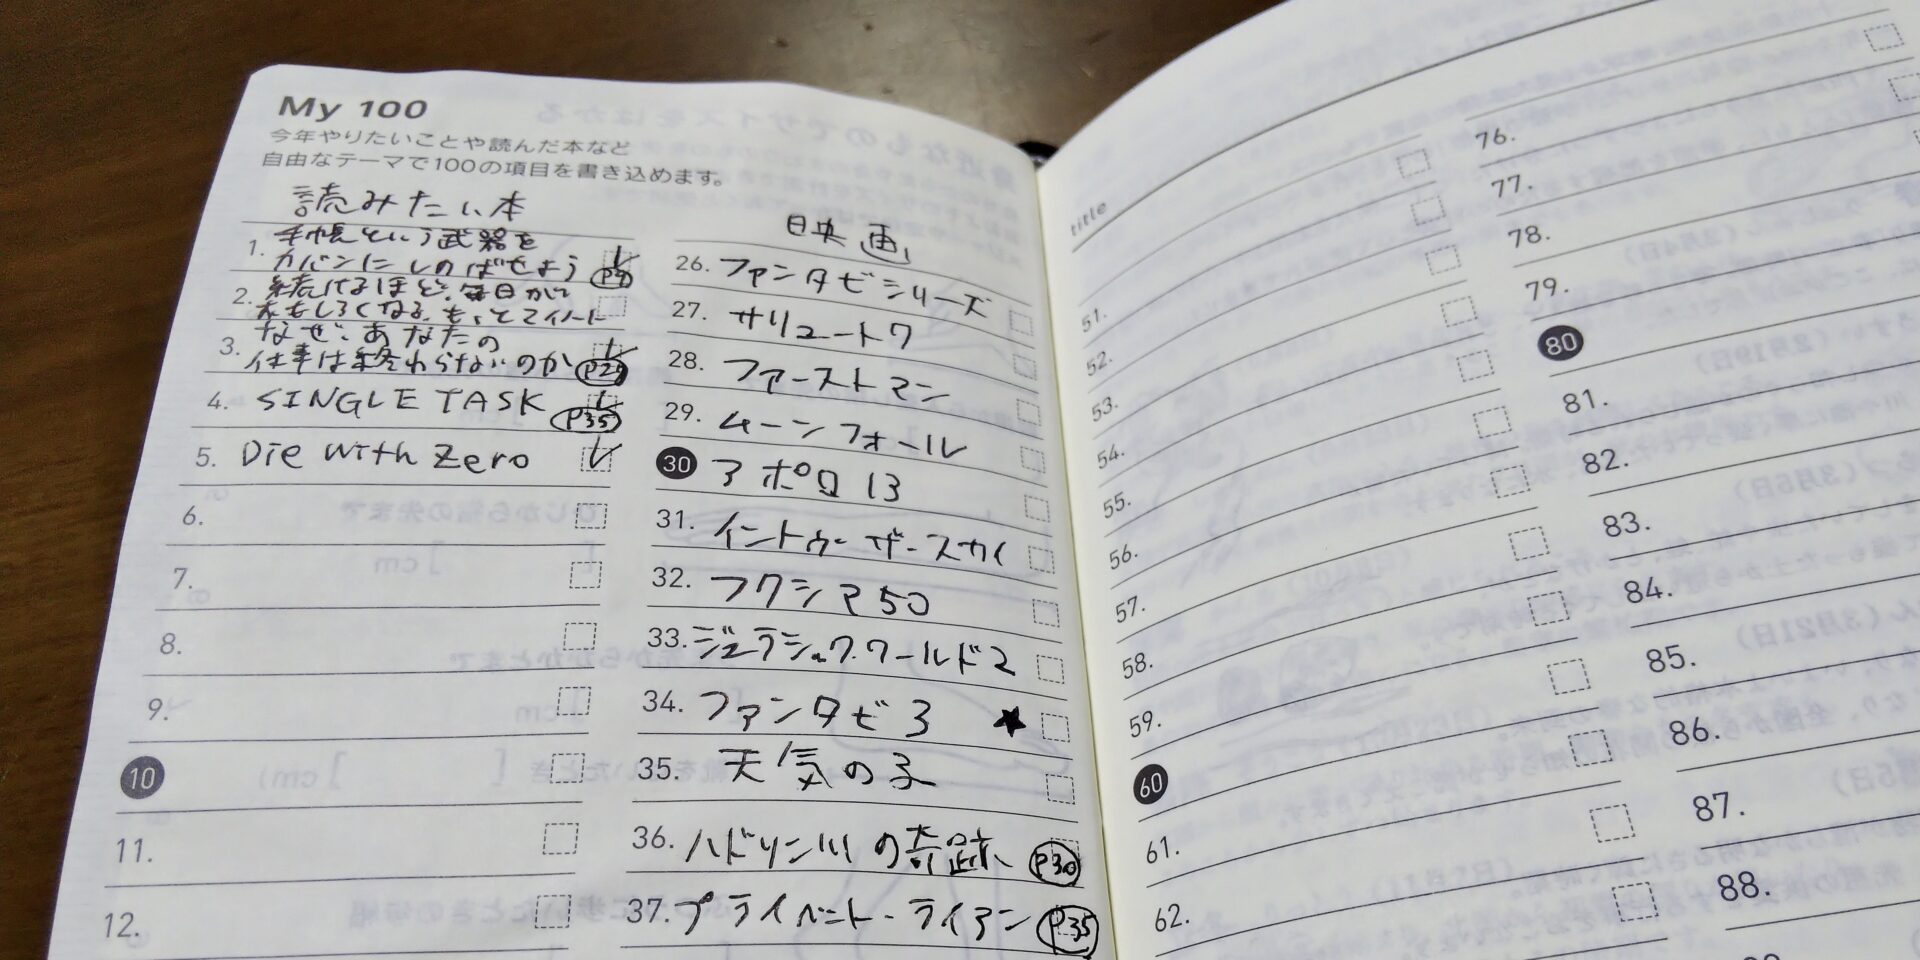 My 100
今年やりたいことや読んだ本など
自由なテーマで100の項目を書き込めます。
読みたい本
1. 手帳という武器を
カバンにしのばせよう
2. 続けるほど、毎日が
おもしろくなる。もっとマイノート
3. なぜ、あなたの
仕事は終わらないのか P25
4. SINGLE TASK P35
5. Die with Zero
6.
7.
8.
9.
10
11.
12.
映画
26. ファンタビシリーズ
27. サリュート7
28. ファーストマン
29. ムーンフォール
30 アポロ13
31. イントゥーザースカイ
32. フクシマ50
33. ジュラシックワールド2
34. ファンタビ3 ★
35. 天気の子
36. ハドソン川の奇跡 P30
37. プライベート・ライアン P35
title
51.
52.
53.
54.
55.
56.
57.
58.
59.
60
61.
62.
76.
77.
78.
79.
80
81.
82.
83.
84.
85.
86.
87.
88.